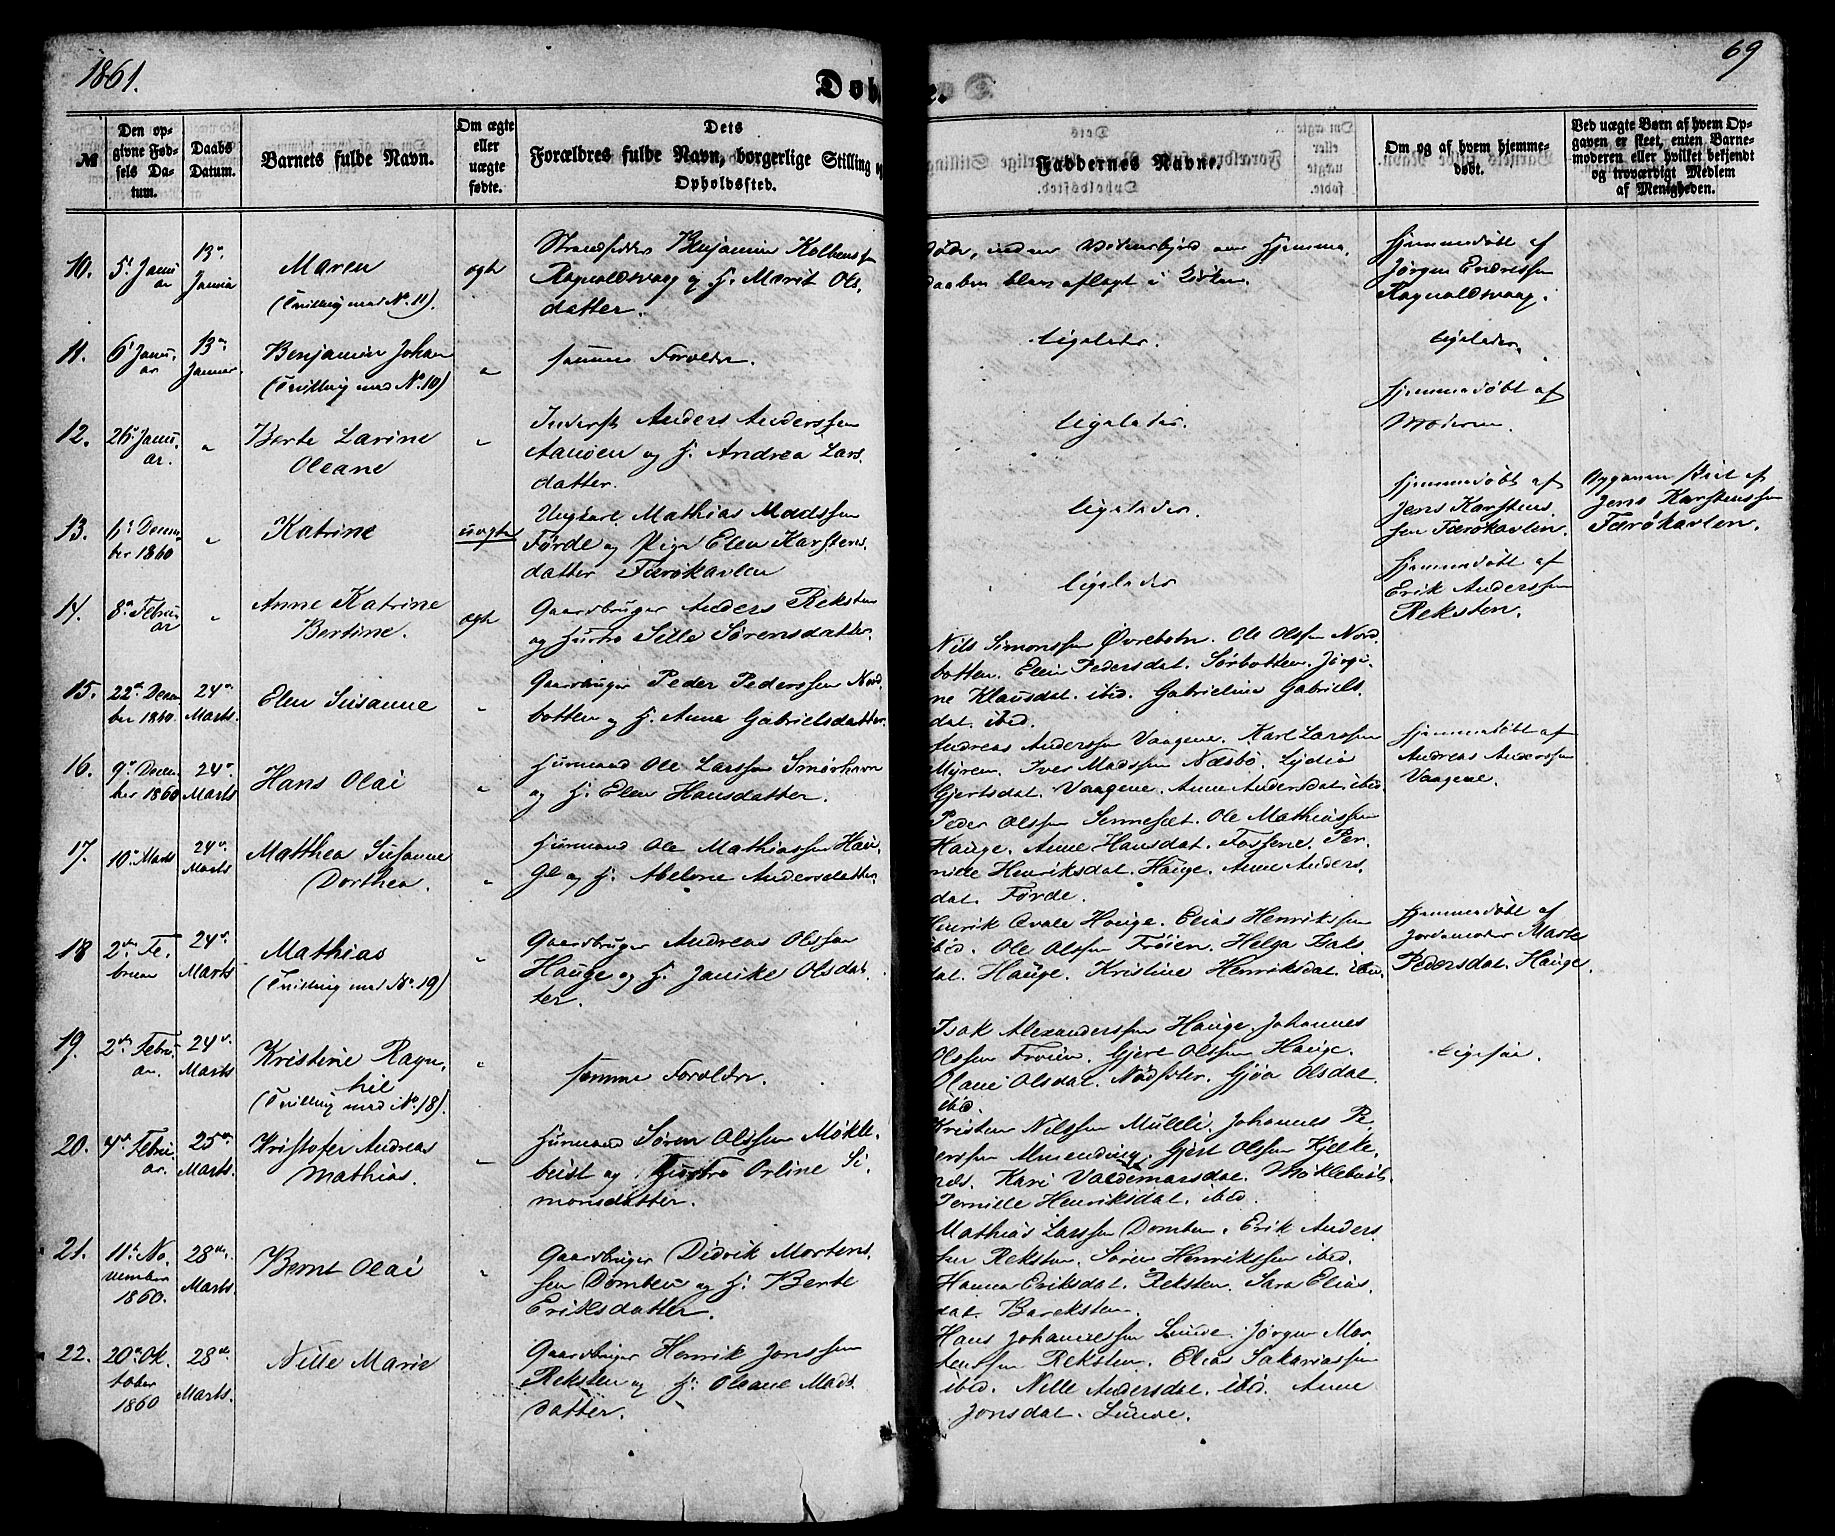 1861.
69
Døbte.
№
Den opgivne Fødsels Datum.
Daabs Datum.
Barnets fulde Navn.
Om ægte eller uægte fødte.
Dets Forældres fulde Navn, borgerlige Stilling og Opholdssted.
Faddernes Navne.
Om og af hvem hjemmedøbt.
Ved uægte Børn af hvem Opgaven er skeet, enten Barnemoderen eller hvilket bekjendt og troværdigt Medlem af Menigheden.
10.
5te Januar
13de Januar
Maren
(Tvilling med No. 11).
ægte
Strandsidder Benjamin Kolbenssen
Ragnaldsvaag og H. Marit Ols-
datter.
døde, inden Vidnesbyrd om Hjemme-
daaben blev aflagt i Kirken.
Hjemmedøbt af
Jørgen Endressen
Ragnaldsvaag.
11.
6te Januar
13de Januar.
Benjamin Johan
(Tvilling med No. 10)
"
samme Forældre.
ligeledes.
ligeledes.
12.
26de Januar.
"
Berte Larine
Oleane
"
Inderst Anders Anderssen
og H. Andrea Lars-
datter.
ligeledes.
Hjemmedøbt af
Moderen.
13.
6te December 1860
"
Katrine
uægte
Ungkarl Mathias Madssen
Førde og Pige Elen Karstens-
datter Færøkavlen
ligeledes.
Hjemmedøbt af
Jens Karstens-
sen Færøkavlen.
Opgaven skeet af
Jens Karstenssen
Færøkavlen.
14.
8de Februar
"
Anne Katrine
Bertine.
ægte
Gaardbruger Anders Reksten
og Hustro Sille Sørensdatter.
ligeledes
Hjemmedøbt af
Erik Anderssen
Reksten.
15.
22de December 1860.
24de Marts.
Elen Susanne
"
Gaardbruger Peder Pederssen Nord-
botten og H. Anne Gabrielsdatter.
Nils Simonssen Øvrebotn. Ole Olssen Nord-
botten. Elen Pedersdat. Sørbotten. Jørgi-
ne Klausdat. ibid. Gabrieline Gabriels-
dat. ibid.
16.
9de December 1860
24de Marts
Hans Olai
"
Huusmand Ole Larssen Smørhavn
og H. Elen Hansdatter.
Andreas Anderssen Vaagene. Karl Larssen
Myren. Iver Madssen Næsbø. Lydia
Gjertsdat. Vaagene. Anne Andersdat. ibid.
Hjemmedøbt af
Andreas Anderssen
Vaagene.
17.
10de Marts
24de Marts
Matthea Susanne
Dorthea.
"
Huusmand Ole Mathiassen Hau-
ge og H. Abelone Andersdatter.
Peder Olssen Sennesæt. Ole Mathiassen
Hauge. Anne Hansdat. Fossene. Per-
nide Henriksdat. Hauge. Anne Anders-
dat. Førde.
18
2den Februar
24de Marts
Mathias
(Tvilling med No. 19)
"
Gaardbruger Andreas Olssen
Hauge og H. Janike Olsdat-
ter.
Henrik Hauge. Elias Henrikssen
ibid. Ole Olssen Trøien. Helga Isaks-
dat. Hauge. Kristine Henriksdat. ibid.
Hjemmedøbt af
Jordemoder Marte
Pedersdat. Hauge.
19.
2den Februar.
24de Marts
Kristine Ragn-
hil
(Tvilling med No. 18).
"
samme Forældre.
Isak Alexanderssen Hauge. Johannes
Olssen Trøien. Gjert Olssen Hauge.
Oline Olsdat. Gjøa Olsdat.
ibid.
ligesaa.
20.
4de Februar.
25de Marts.
Kristofer Andreas
Mathias.
"
Huusmand Søren Olssen Møkle-
bust og Hustro Orline Si-
monsdatter.
Kristen Nilssen Muleli. Johannes Pe-
derssen Almending. Gjert Olssen Hjelke-
næs. Kari Valdemarsdat. Møklebust.
Pernille Henriksdat. ibid.
21.
11te November 1860.
28de Marts.
Bernt Olai
"
Gaardbruger Didrik Mortens-
sen Domben og H. Berte
Eriksdatter.
Mathias Larssen Domben. Erik Anders-
sen Reksten. Søren Henrikssen ibid.
Hanna Eriksdat. Reksten. Sara Elias-
dat. Bareksten.
22.
20de Oktober 1860
28de Marts.
Nille Marie
Gaardbruger Henrik Jonssen
Reksten og H. Oleane Mads-
datter.
Hans Johannessen Lunde. Jørgen Mor-
tenssen Reksten. Elias Sakariassen
ibid. Nille Andersdat. ibid. Anne
Jonsdat. Lunde.